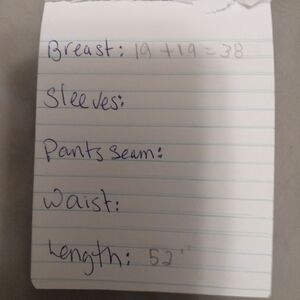 Breast: 19 + 19 = 38
Sleeves:
Pants seam:
Waist:
Length: 52"